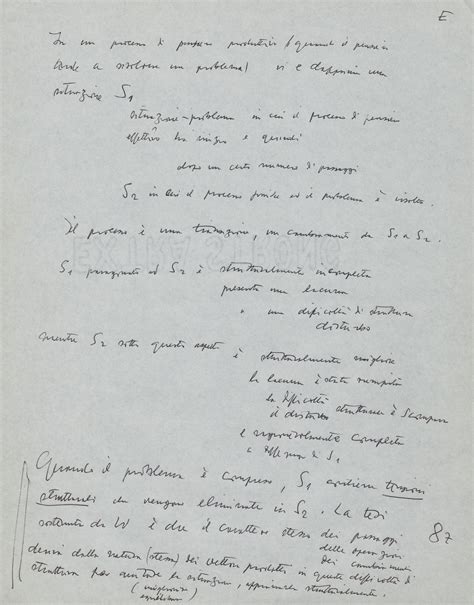 E
In un processo di pensiero produttivo (quando il pensiero
tende a risolvere un problema) vi è dapprima una
situazione S1
situazione-problema in cui il processo di pensiero
effettivo ha inizio e quindi
dopo un certo numero di passaggi
S2 in cui il processo finisce ed il problema è risolto.
Il processo è una transizione, un cambiamento da S1 a S2.
S1 paragonata ad S2 è strutturalmente incompleta
presenta una lacuna
" una difficoltà di struttura
disturbo
mentre S2 sotto questi aspetti è strutturalmente migliore
la lacuna è stata riempita
la difficoltà strutturale è scomparsa
il disturbo
è completa
a differenza di S1
Quando il problema è compreso, S1 contiene tensioni
strutturali che vengono eliminate in S2. La tesi
sostenuta da W è che il carattere stesso dei passaggi
delle operazioni
dei cambiamenti
87
derivi dalla natura (stessa) dei vettori prodotti in queste difficoltà di
struttura per la situazione, strutturalmente.
(migliorare
equilibrare)